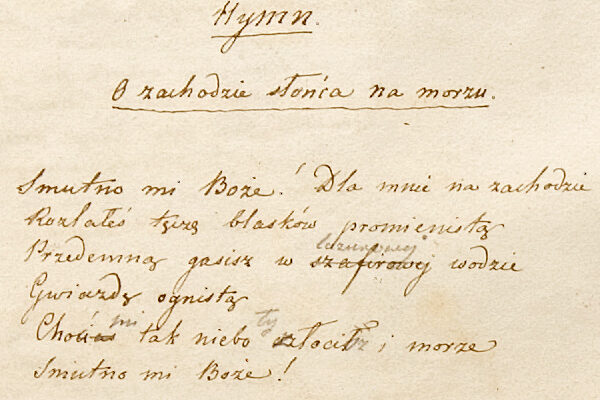 Hymn.
O zachodzie słońca na morzu.
Smutno mi Boże! Dla mnie na zachodzie
Rozlałeś tęczę blasków promienistą
lazurowej
Przedemną gasisz w szafirowej wodzie
Gwiazdę ognistą
mi ty
Choć tak niebo złocisz i morze
Smutno mi Boże!